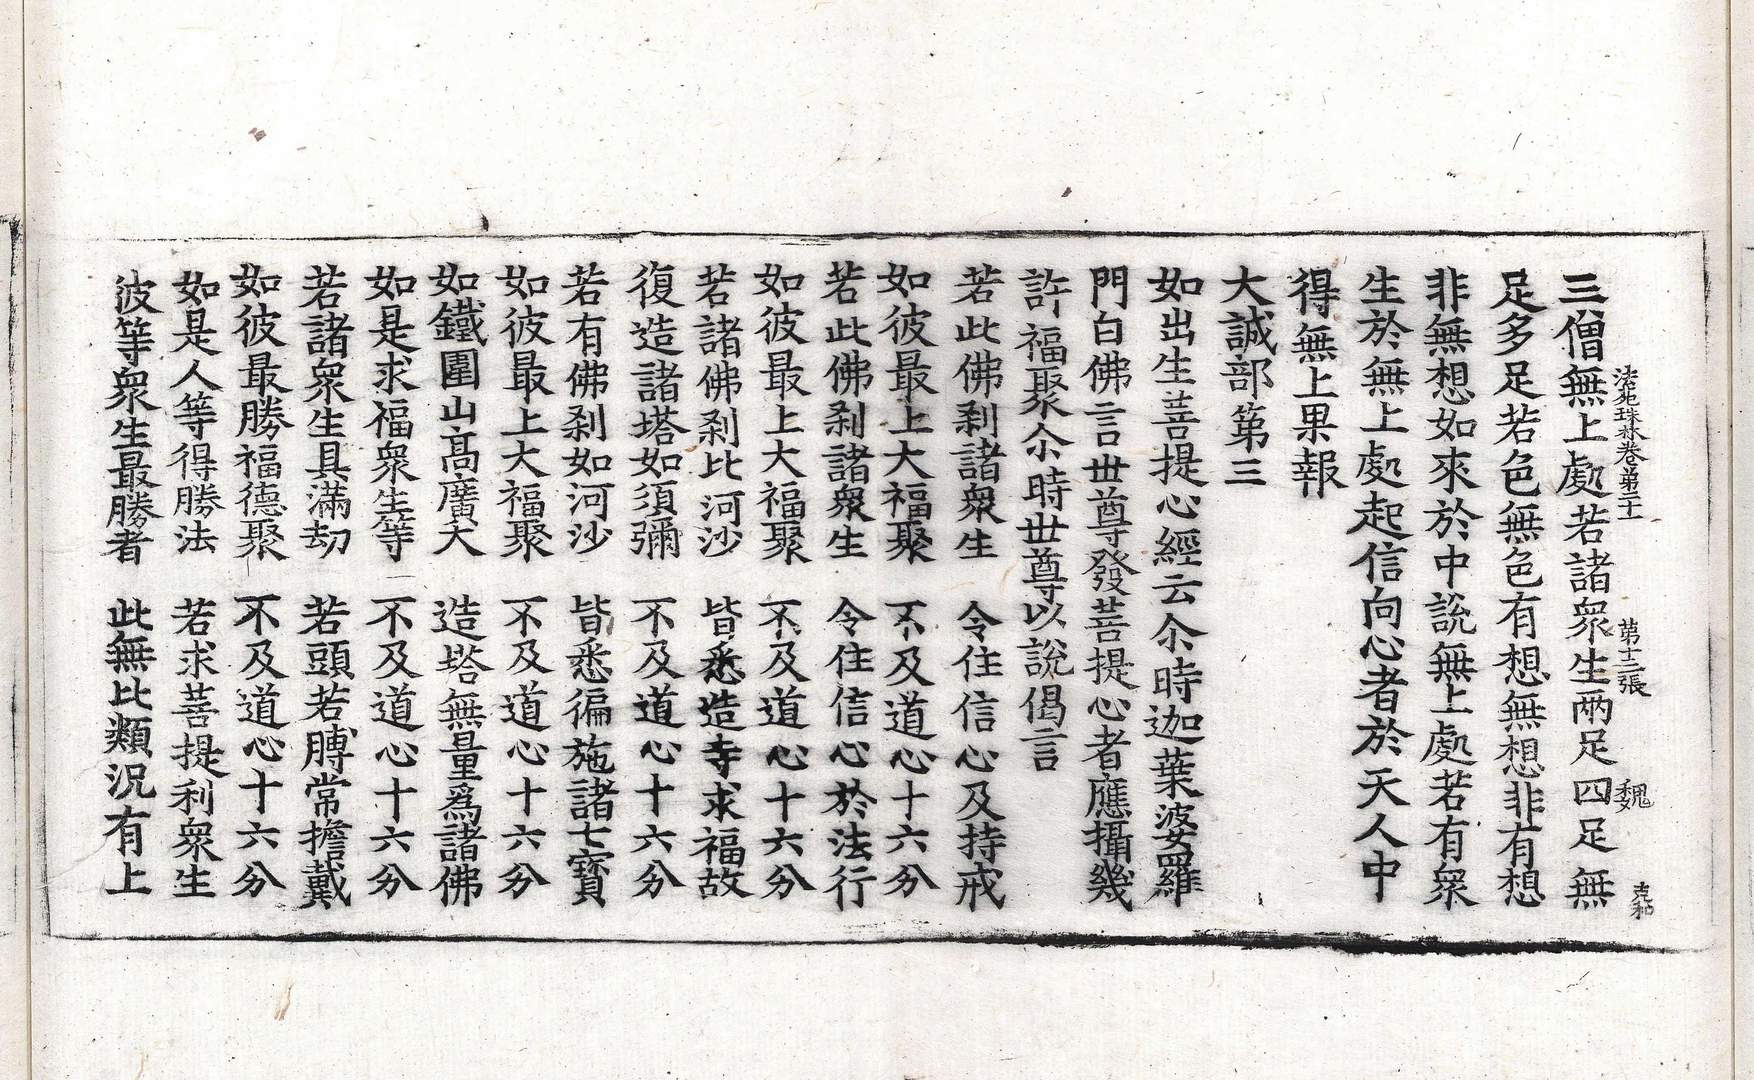 法苑珠林卷第二十 第十二張 魏 克和
三僧無上處若諸衆生兩足四足無
足多足若色無色有想無想非有想
非無想如來於中說無上處若有衆
生於無上處起信向心者於天人中
得無上果報
大誠部第三
如出生菩提心經云尒時迦葉婆羅
門白佛言世尊發菩提心者應攝幾
許福聚尒時世尊以說偈言
若此佛剎諸衆生 令住信心及持戒
如彼最上大福聚 不及道心十六分
若此佛剎諸衆生 令住信心於法行
如彼最上大福聚 不及道心十六分
若諸佛剎比河沙 皆悉造寺求福故
復造諸塔如須彌 不及道心十六分
若有佛剎如河沙 皆悉徧施諸七寶
如彼最上大福聚 不及道心十六分
如鐵圍山高廣大 造塔無量爲諸佛
如是求福衆生等 不及道心十六分
若諸衆生具滿劫 若頭若膊常擔戴
如彼最勝福德聚 不及道心十六分
如是人等得勝法 若求菩提利衆生
彼等衆生最勝者 此無比類況有上